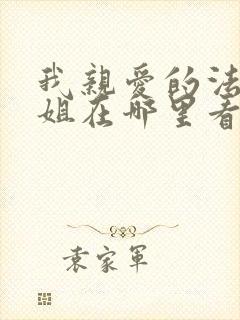 我親愛的法
姐在哪里看
袁家軍